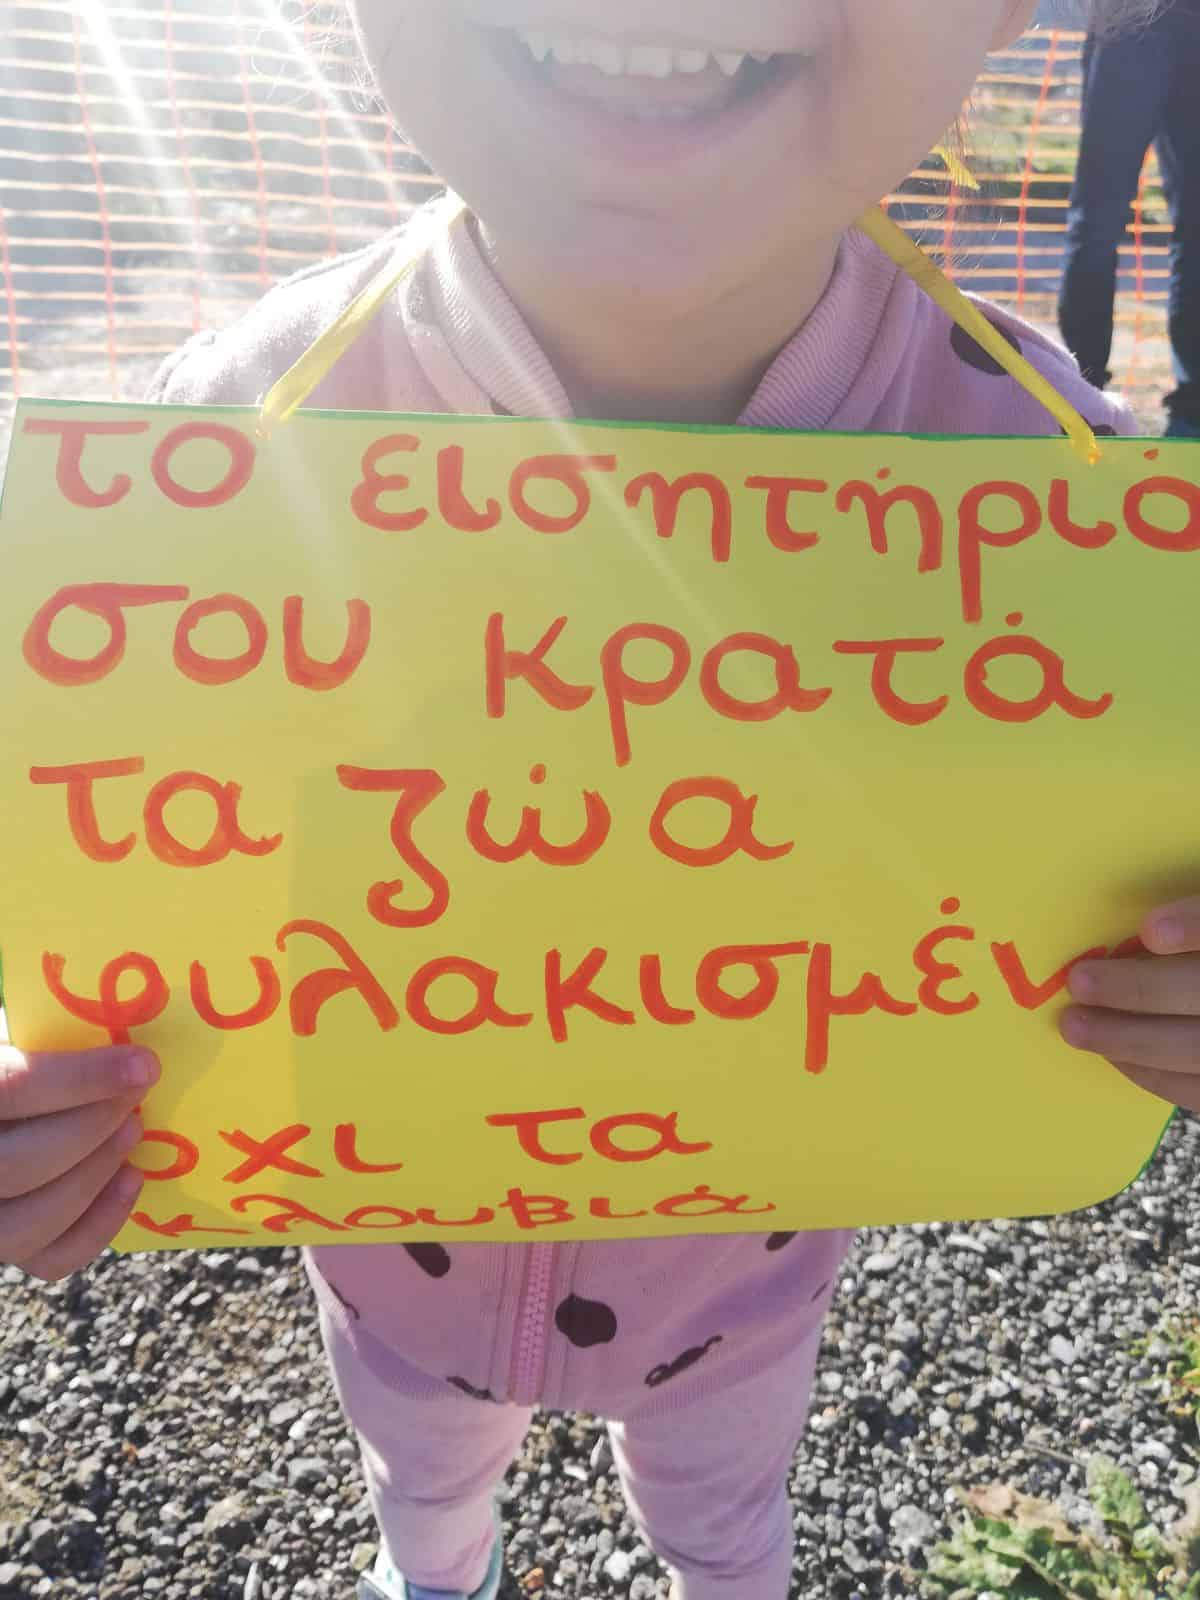 το εισητήριό
σου κρατά
τα ζώα
φυλακισμένα
όχι τα
κλουβιά